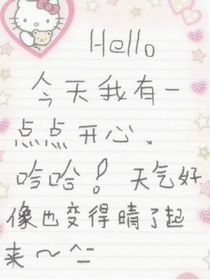 Hello
今天我有一
点点开心、
哈哈！天气好
像也变得晴了起
来～^=